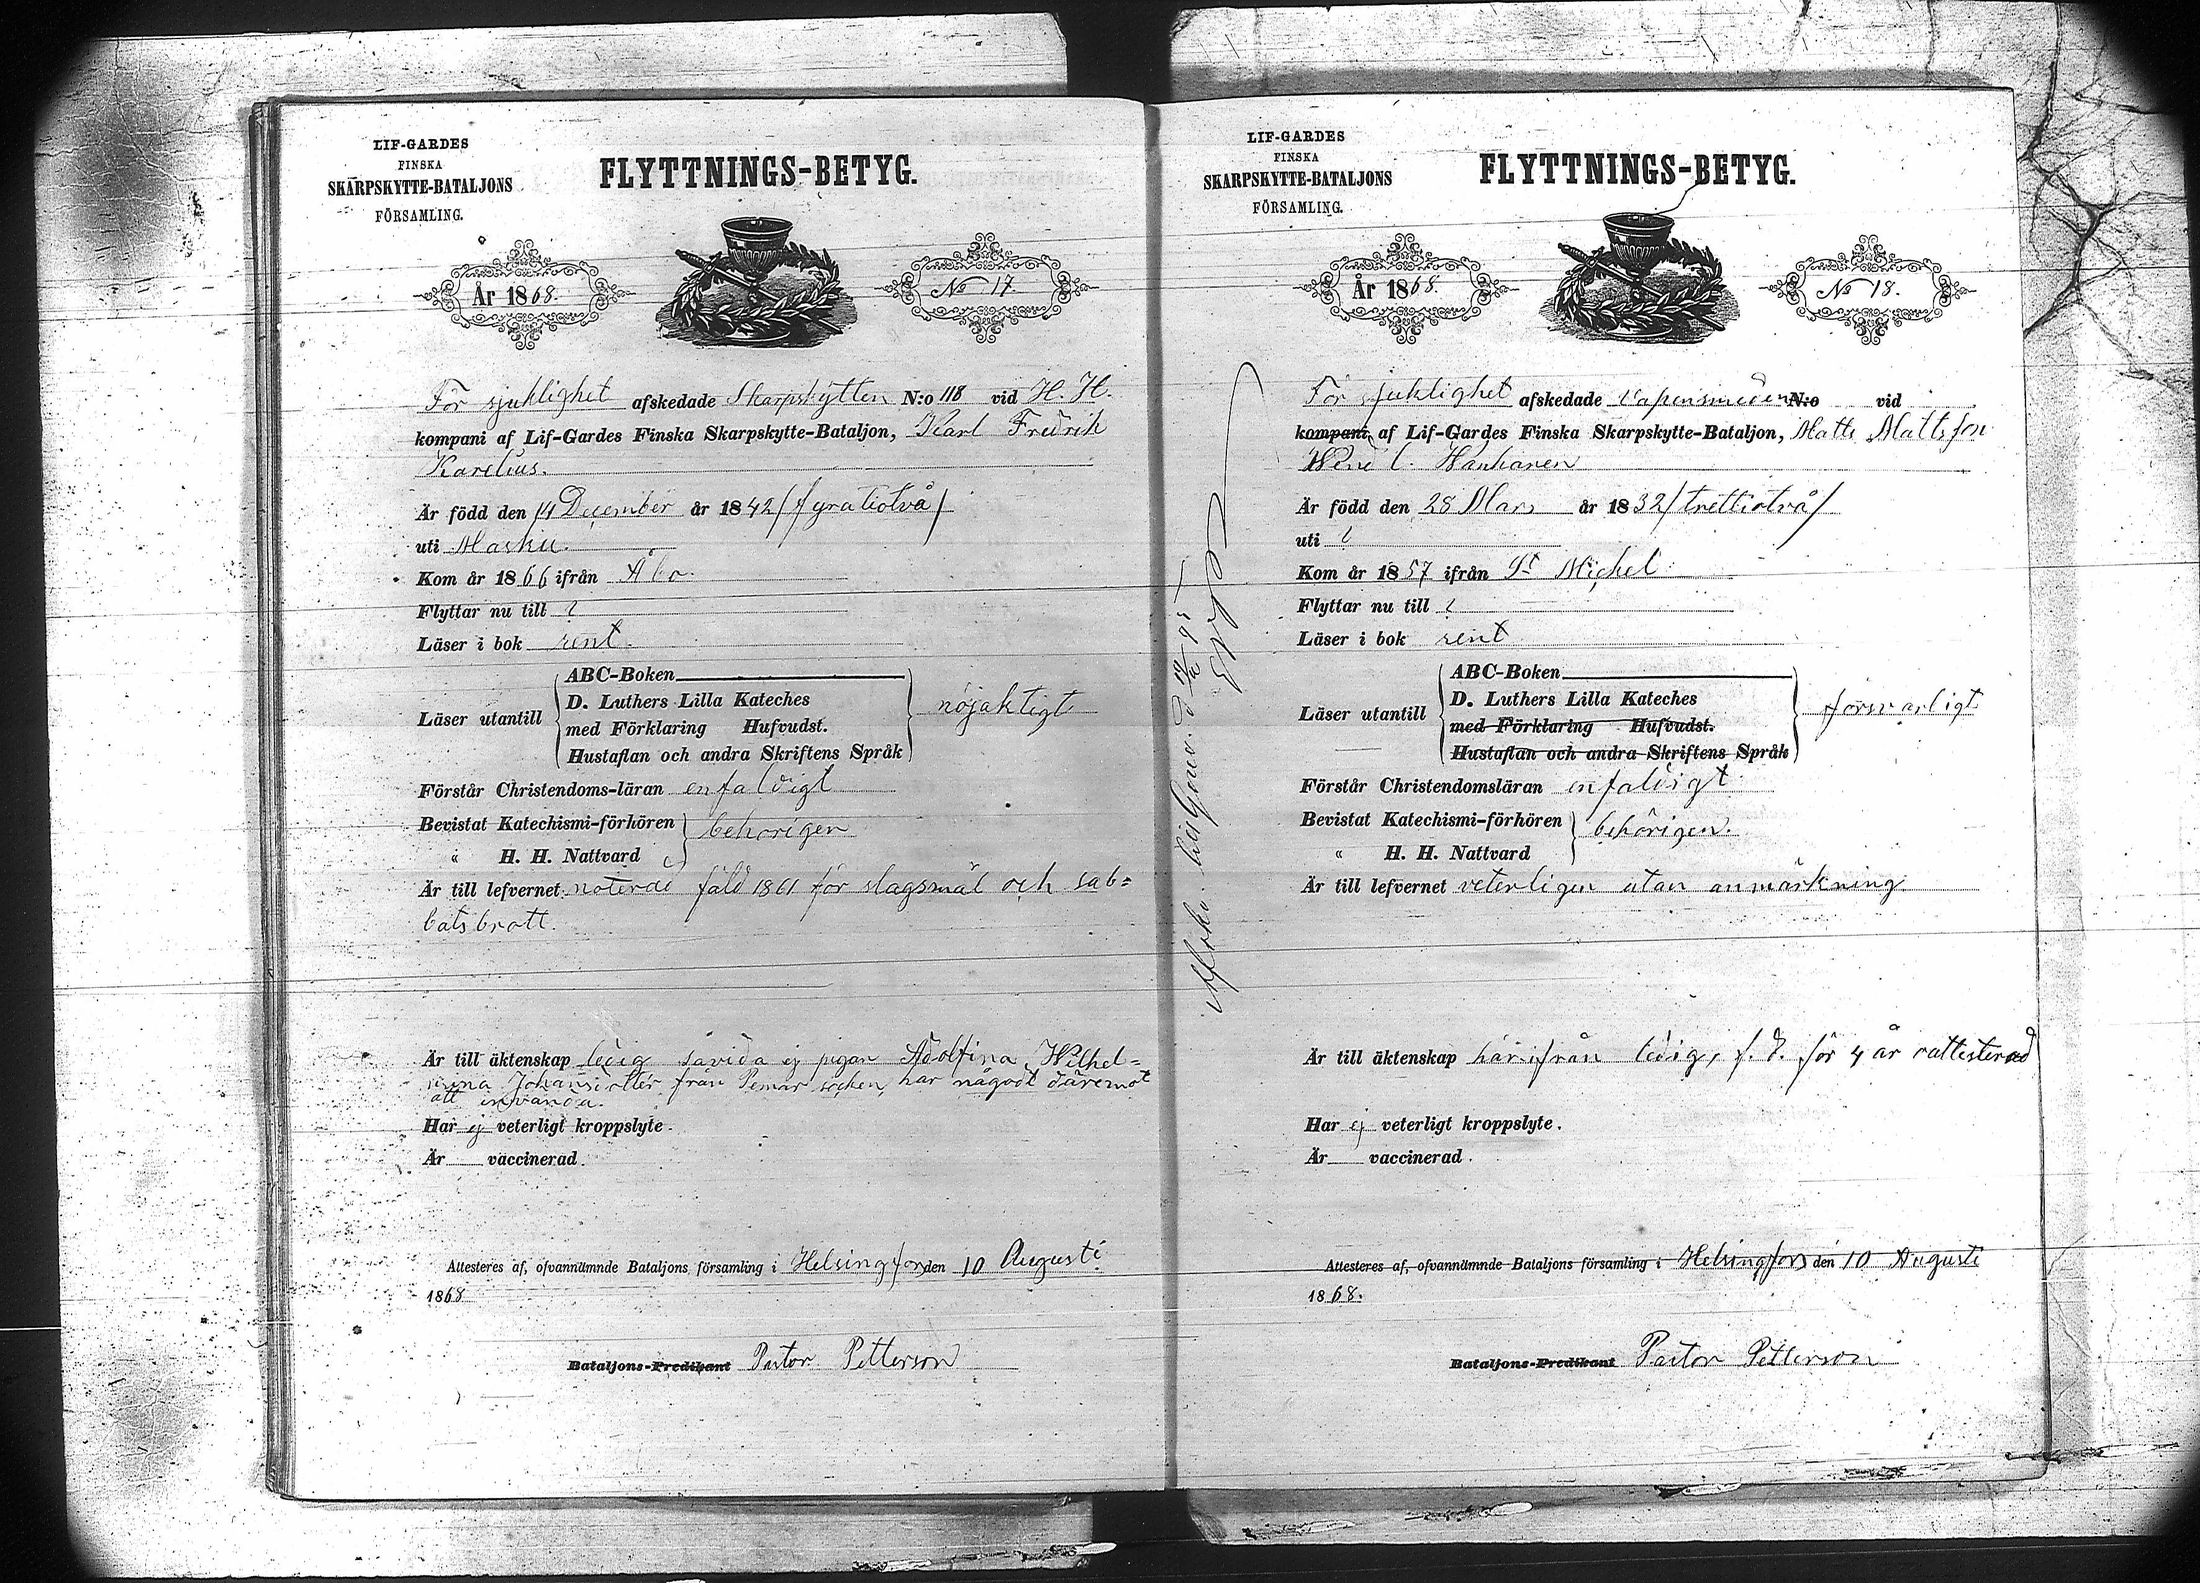 LIF-GARDES
FINSKA
SKARPSKYTTE-BATALJONS
FÖRSAMLING.
FLYTTNINGS-BETYG.
År 1868.
No 17.
För sjuklighet afskedade Skarpskytten N:o 118 vid H. H.
kompani af Lif-Gardes Finska Skarpskytte-Bataljon, Karl Fredrik
Karelius.
Är född den 14 December år 1842 / fyratiotvå /
uti Masku.
Kom år 1866 ifrån Åbo.
Flyttar nu till ?
Läser i bok rent.
ABC-Boken
Läser utantill D. Luthers Lilla Kateches
med Förklaring Hufvudst. nöjaktigt
Hustaflan och andra Skriftens Språk
Förstår Christendoms-läran enfaldigt
Bevistat Katechismi-förhören behörigen
" H. H. Nattvard
Är till lefvernet noterad fäld 1861 för slagsmål och sab=
batsbrott.
Är till äktenskap ledig såvida ej pigan Adolfina Wilhel=
mina Johansdotter från Pemar socken, har något däremot
att invända.
Har ej veterligt kroppslyte.
Är vaccinerad.
Attesteres af, ofvannämnde Bataljons församling i Helsingfors den 10 Augusti
1868
Bataljons-Predikant Pastor Petterson
LIF-GARDES
FINSKA
SKARPSKYTTE-BATALJONS
FÖRSAMLING.
FLYTTNINGS-BETYG.
År 1868.
No 18.
För sjuklighet afskedade Vapensmeden N:o vid
kompani af Lif-Gardes Finska Skarpskytte-Bataljon, Matts Mattsson
Hanhanen
Är född den 28 Mars år 1832 / trettiotvå /
uti ?
Kom år 1857 ifrån St Michel
Flyttar nu till ?
Läser i bok rent
ABC-Boken
Läser utantill D. Luthers Lilla Kateches
med Förklaring Hufvudst. försvarligt
Hustaflan och andra Skriftens Språk
Förstår Christendomsläran enfaldigt
Bevistat Katechismi-förhören behörigen.
" H. H. Nattvard
Är till lefvernet veterligen utan anmärkning
Är till äktenskap härifrån ledig, f. d. för 4 år oattesterad
Har ej veterligt kroppslyte.
Är vaccinerad.
Attesteres af, ofvannämnde Bataljons församling i Helsingfors den 10 Augusti
1868.
Bataljons-Predikant Pastor Petterson